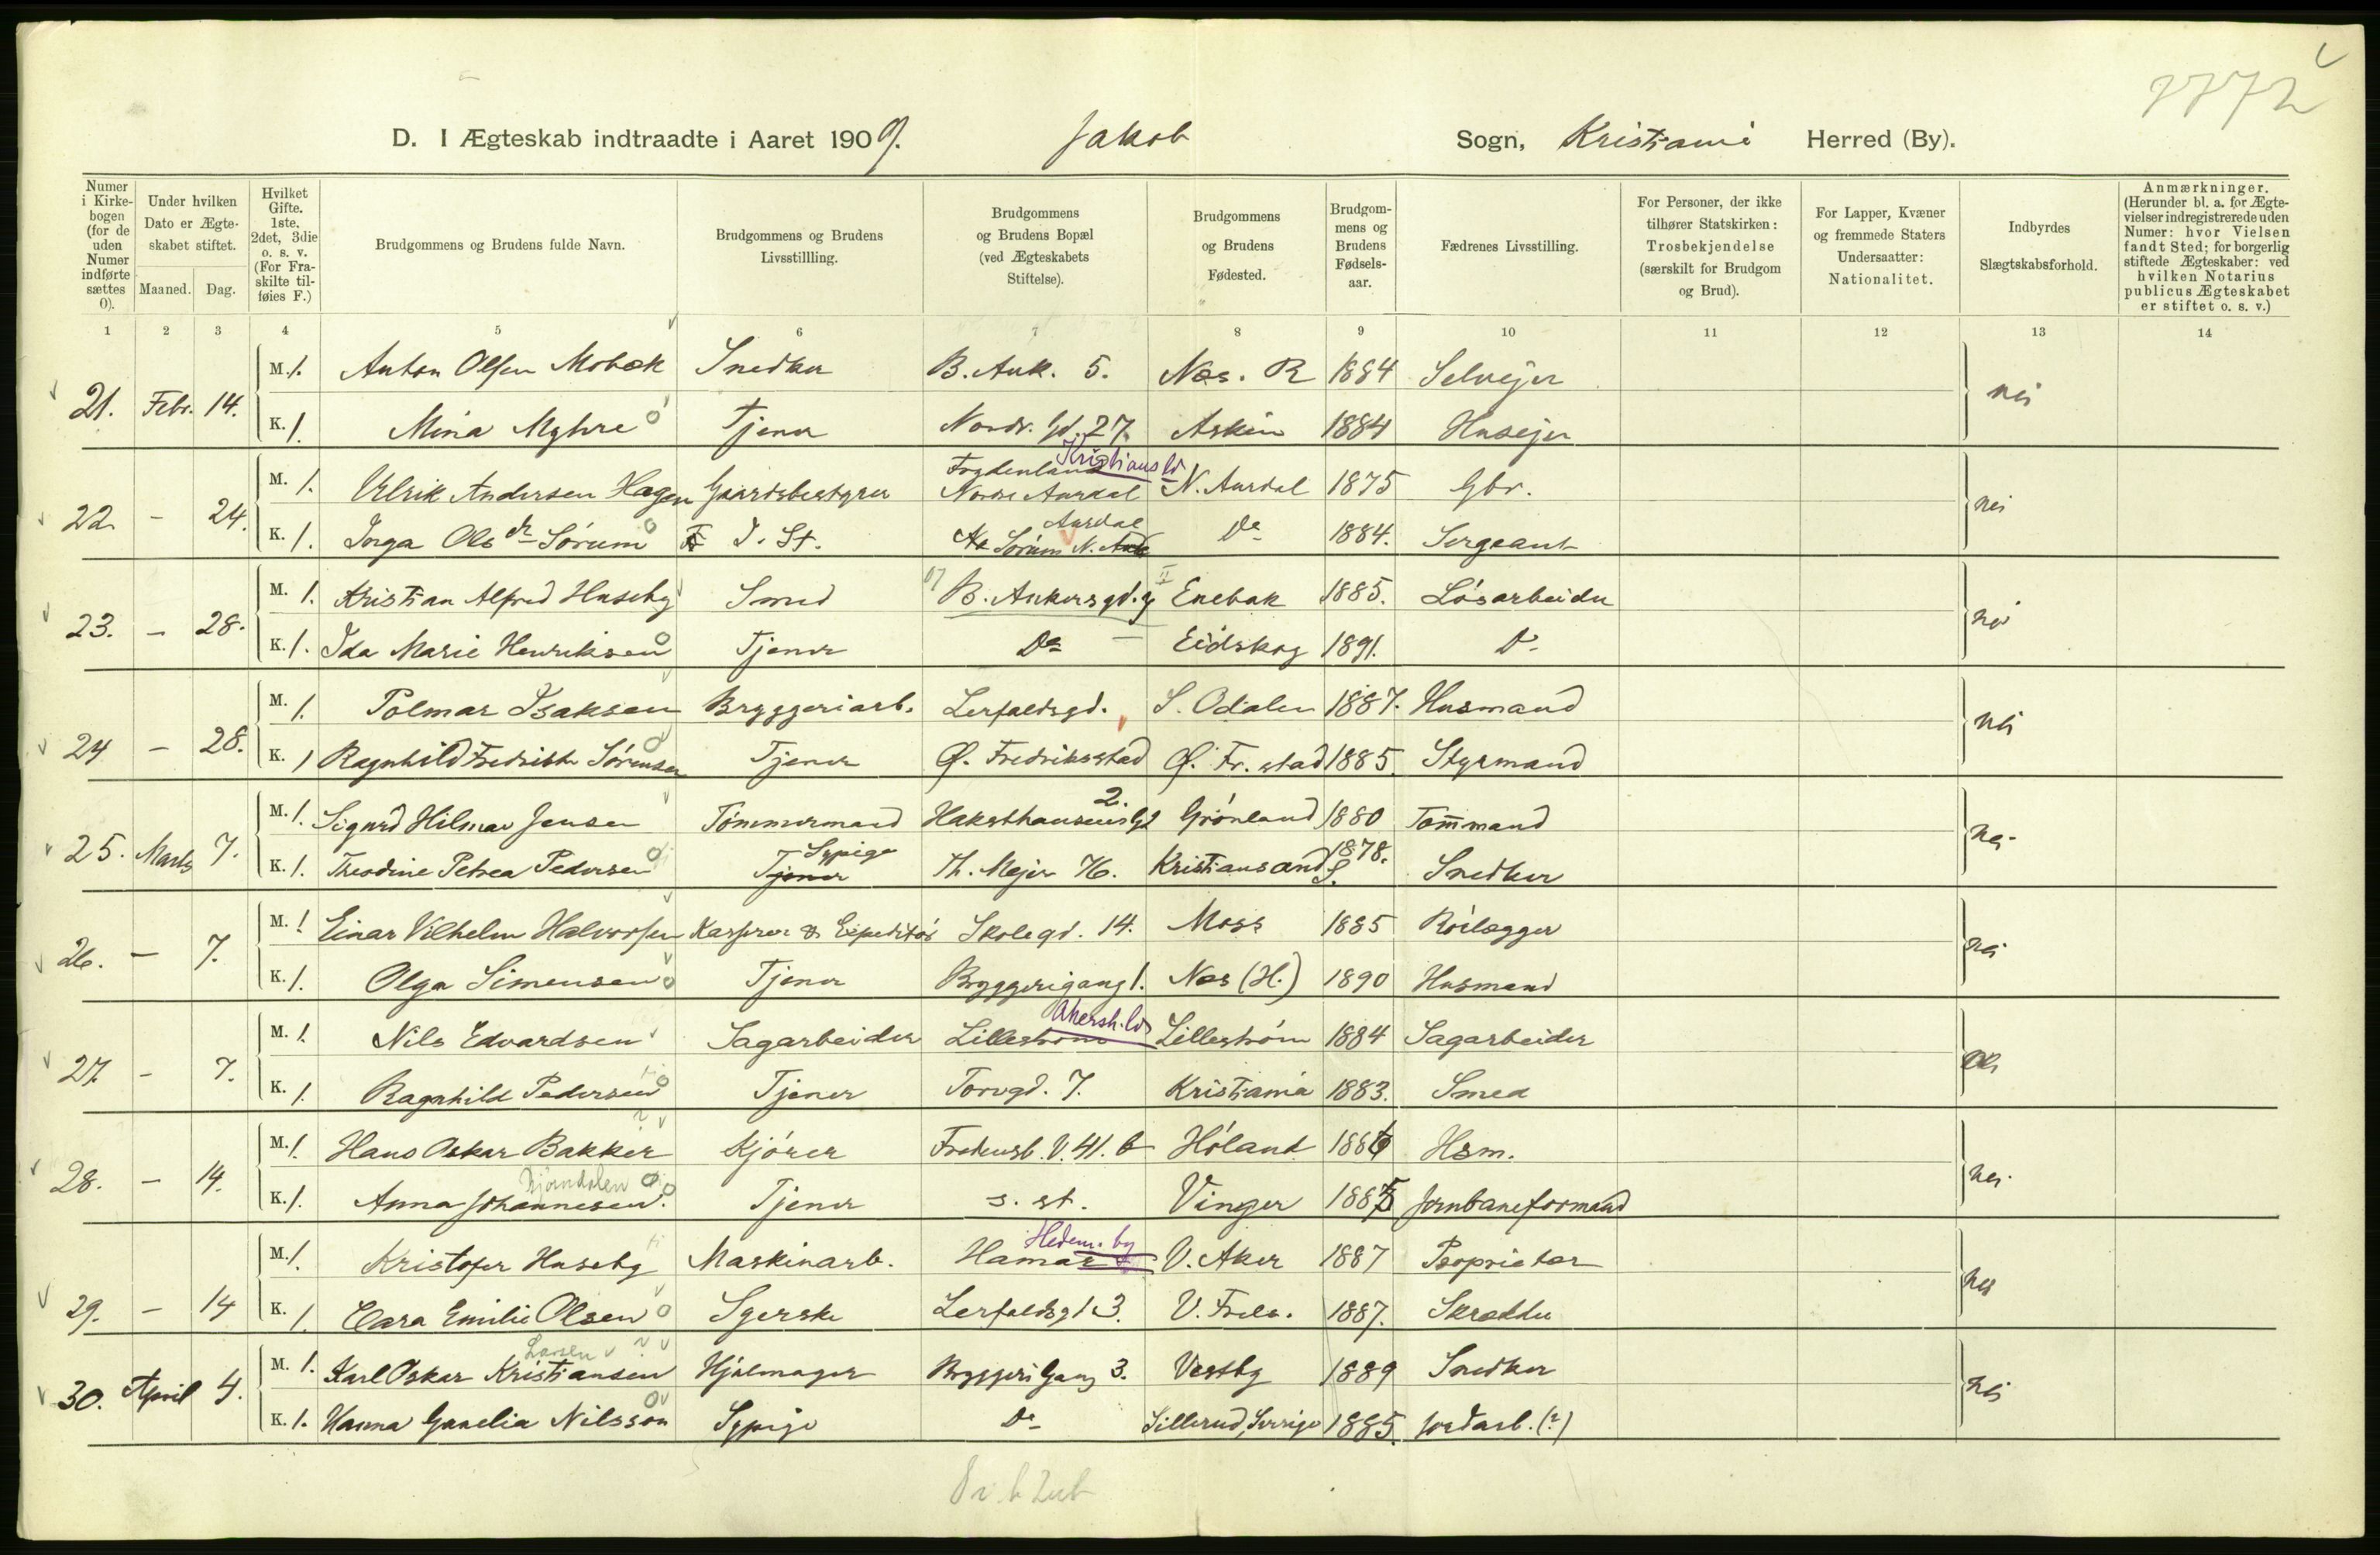 D. I Ægteskab indtraadte i Aaret 1909. Jakob Sogn, Kristiania Herred (By).
Numer i Kirkebogen (for de uden Numer indførte sættes 0).
Under hvilken Dato er Ægteskabet stiftet. Maaned. Dag.
Hvilket Gifte. 1ste, 2det, 3die o. s. v. (For Fraskilte tilføies F.)
Brudgommens og Brudens fulde Navn.
Brudgommens og Brudens Livsstillling.
Brudgommens og Brudens Bopæl (ved Ægteskabets Stiftelse).
Brudgommens og Brudens Fødested.
Brudgommens og Brudens Fødselsaar.
Fædrenes Livsstilling.
For Personer, der ikke tilhører Statskirken: Trosbekjendelse (særskilt for Brudgom og Brud).
For Lapper, Kvæner og fremmede Staters Undersaatter: Nationalitet.
Indbyrdes Slægtskabsforhold.
Anmærkninger. (Herunder bl. a. for Ægtevielser indregistrerede uden Numer: hvor Vielsen fandt Sted; for borgerlig stiftede Ægteskaber: ved hvilken Notarius publicus Ægteskabet er stiftet o. s. v.)
1 2 3 4 5 6 7 8 9 10 11 12 13 14
21. Febr. 14. M. 1. Anton Olsen Mobæk Snedker B. Ank. 5. Næs. R 1884 Selvejer nei
K. 1. Mina Myhre Tjener Nordr. Gd. 27. Askim 1884 Husejer
22. - 24. M. 1. Ulrik Andersen Hagen Gaardsbestyrer Frydenlund Nordre Aurdal Kristians N. Aurdal 1875 Gbr. nei
K. 1. Inga Olsdr. Sørum I. St. Sørum N. Aurdal Do 1884. Sergeant
23. - 28. M. 1. Kristian Alfred Huseby Smed B. Ankersgd. 9 Enebak 1885. Løsarbeider nei
K. 1. Ida Marie Henriksen Tjener Do - Eidskog 1891. Do
24 - 28. M. 1. Polmar Isaksen Bryggeriarb. Lerfaldsgd. S. Odalen 1887. Husmand nei
K. 1 Ragnhild Fredrikke Sørensen Tjener Ø. Fredriksstad Ø. Fr. stad 1885. Styrmand
25. Marts 7. M. 1. Sigurd Hilmar Jensen Tømmermand Haksthausens Gd 2. Grønland 1880 Tømmand nei
K. 1. Theodine Petrea Pedersen Tjener Sypige Th. Mejer 76. Kristiansand S. 1878. Snedker
26. - 7. M. 1 Einar Vilhelm Halvorsen Kasserer & Expeditør Skolegd. 14. Moss 1885 Rørlægger nei
K. 1. Olga Simensen Tjener Bryggerigang 1. Næs (H.) 1890 Husmand
27. - 7. M. 1. Nils Edvardsen Sagarbeider Lillestrøm Akersh. Lillestrøm 1884 Sagarbeider nei
K. 1. Ragnhild Pedersen Tjener Torvgd. 7. Kristiania 1883. Smed
28. - 14. M. 1. Hans Oskar Bakker Kjører Fredensb. V. 41. b Høland 1886 Hsm. nei
K. 1. Anna Johannesen. Bjørndalen Tjener s. st. Vinger 1885 Jernbaneformand
29. - 14 M. 1. Kristofer Huseby Maskinarb. Hamar Hedem. by V. Aker 1887 Proprietær nei
K. 1. Clara Emilie Olsen Syerske Lerfaldsgd 3. V. Freds. 1887. Skrædder
30. April 4. M. 1. Karl Oskar Kristiansen Larsen Hjulmager Bryggeri Gang 3. Vestby 1889 Snedker nei
K. 1. Hanna Gunelia Nilsson Sypige Do Sillerud, Sverige 1885. Jordarb. (?)